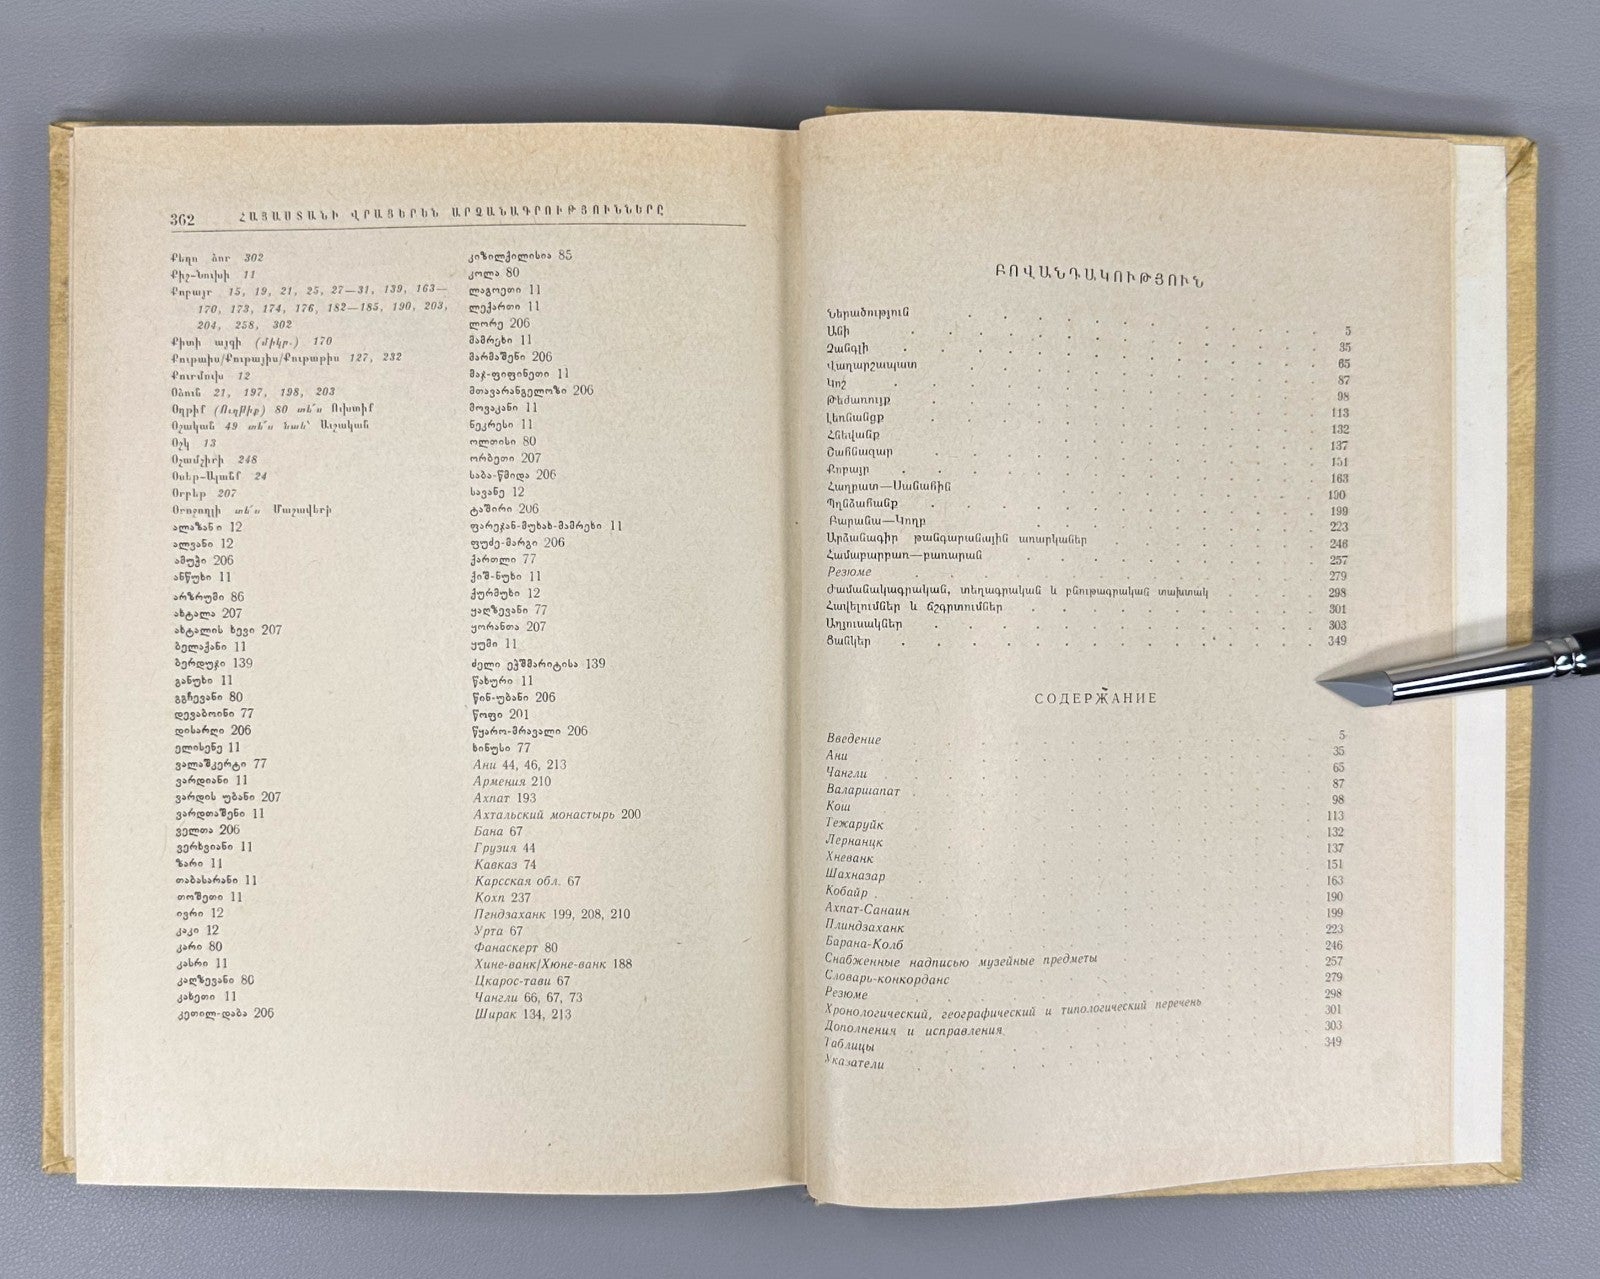 362 ՀԱՅԱՍՏԱՆԻ ՎՐԱՑԵՐԵՆ ԱՐՁԱՆԱԳՐՈՒԹՅՈՒՆՆԵՐԸ
Քեղո ձոր 302
Քիշ-Նուխի 11
Քոբայր 15, 19, 21, 25, 27—31, 139, 163—
170, 173, 174, 176, 182—185, 190, 203,
204, 258, 302
Քիտի այգի (միկր.) 170
Քութաիս/Քութայիս/Քութաթիս 127, 232
Քուրմուխ 12
Օձուն 21, 197, 198, 203
Օղթիմ (Ուղթիք) 80 տե՛ս Ուխտիմ
Օշական 49 տե՛ս նաև՝ Աւշական
Օշկ 13
Օշամչիրի 248
Օսեր-Պլանմ 24
Օրբեթ 207
Օրոջողլի տե՛ս Մաշավերի
ალაზანი 12
ალვანი 12
ამუჰი 206
ანწუხი 11
არზრუმი 86
ახტალა 207
ახტალის ხევი 207
ბელაქანი 11
ბერდუჯი 139
განუხი 11
გგჩევანი 80
დევაბოინი 77
დისარღი 206
ელისენე 11
ვალაშკერტი 77
ვარდიანი 11
ვარდის უბანი 207
ვართაშენი 11
ველთა 206
ვერხვიანი 11
ზარი 11
თაბასარანი 11
თოშეთი 11
ივრი 12
კაკი 12
კარი 80
კასრი 11
კაღზევანი 80
კახეთი 11
კეთილ-დაბა 206
კიზილქილისია 85
კოლა 80
ლაგოეთი 11
ლექართი 11
ლორე 206
მამრეხი 11
მარმაშენი 206
მაჯ-ფიფინეთი 11
მთავარანგელოზი 206
მოვაკანი 11
ნეკრესი 11
ოლთისი 80
ორბეთი 207
საბა-წმიდა 206
სავანე 12
ტაშირი 206
ფარეჯან-მუხახ-მამრეხი 11
ფუძე-მარგი 206
ქართლი 77
ქიშ-ნუხი 11
ქურმუხი 12
ყაღზევანი 77
ყორანთა 207
ყუმი 11
ძელი ჯეშმარიტისა 139
წახური 11
წინ-უბანი 206
წოფი 201
წყარო-მრავალი 206
ხინუსი 77
Ани 44, 46, 213
Армения 210
Ахпат 193
Ахтальский монастырь 200
Бана 67
Грузия 44
Кавказ 74
Карсская обл. 67
Кохп 237
Пендзаханк 199, 208, 210
Урта 67
Фанаскерт 80
Хине-ванк/Хюне-ванк 188
Цкарос-тави 67
Чангли 66, 67, 73
Ширак 134, 213
ԲՈՎԱՆԴԱԿՈՒԹՅՈՒՆ
Ներածություն 5
Անի 35
Չանգլի 65
Վաղարշապատ 87
Կոշ 98
Թեժառույք 113
Լեռնանցք 132
Հնեվանք 137
Շահնազար 151
Քոբայր 163
Հաղբատ—Սանահին 190
Պղնձահանք 199
Բարանա—Կողբ 223
Արձանագիր թանգարանային առարկաներ 246
Համաբարբառ—բառարան 257
Резюме 279
Ժամանակագրական, տեղագրական և բնութագրական տախտակ 298
Հավելումներ և ճշգրտումներ 301
Աղյուսակներ 303
Ցանկեր 349
СОДЕРЖАНИЕ
Введение 5
Ани 35
Чангли 65
Валаршапат 87
Кош 98
Тежаруйк 113
Лернанцк 132
Хневанк 137
Шахназар 151
Кобайр 163
Ахпат-Санаин 190
Плиндзаханк 199
Барана-Колб 223
Снабженные надписью музейные предметы 246
Словарь-конкорданс 257
Резюме 279
Хронологический, географический и типологический перечень 298
Дополнения и исправления 301
Таблицы 303
Указатели 349